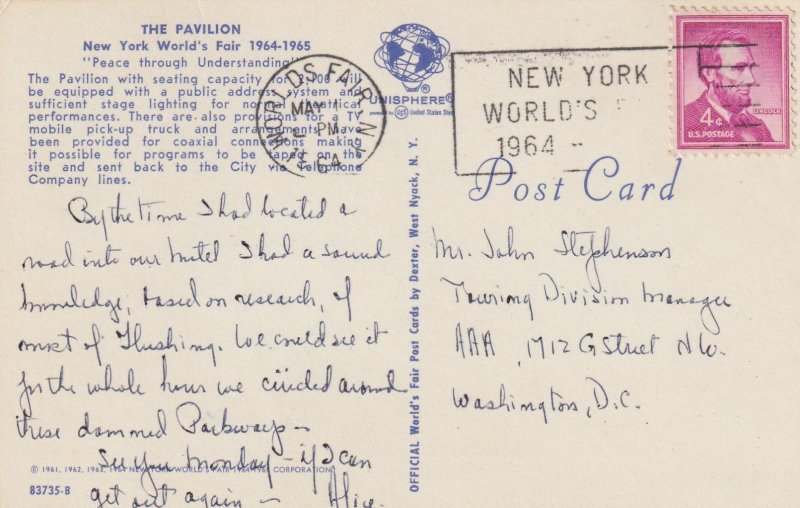 THE PAVILION
New York World's Fair 1964-1965
"Peace through Understanding"
The Pavilion with seating capacity for will
be equipped with a public address system and
sufficient stage lighting for
performances. There are also provisions for a TV
mobile pick-up truck and arrangements have
been provided for coaxial connections making
it possible for programs to be taped on the
site and sent back to the City via Telephone
Company lines.
UNISPHERE®
presented by USS United States Steel
WORLD'S FAIR N.Y.
MAY
PM
1964
NEW YORK
WORLD'S F
1964 -
4¢
LINCOLN
U.S. POSTAGE
Post Card
By the time I had located a
road into our motel I had a sound
knowledge, based on research, of
most of Flushing. We could see it
for the whole hour we circled around
these dammed Parkways –
see you Monday – if I can
get out again – Alice.
Mr. John Stephenson
Touring Division Manager
AAA, 1712 G Street NW.
Washington, D.C.
OFFICIAL World's Fair Post Cards by Dexter, West Nyack, N. Y.
© 1961, 1962, 1963, 1964 NEW YORK WORLD'S FAIR 1964-1965 CORPORATION
83735-B